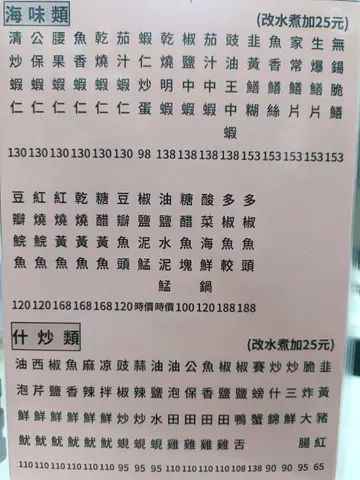 海味類
(改水煮加25元)
清炒蝦仁 130
公保蝦仁 130
腰果蝦仁 130
魚香蝦仁 130
乾燒蝦仁 130
茄汁蝦仁 130
蝦仁炒蛋 98
乾燒明蝦 138
椒鹽中蝦 138
茄汁中蝦 138
豉油王中蝦 138
韭黃鱔糊 153
魚香鱔絲 153
家常鱔片 153
生爆鱔片 153
無鍚脆鱔 153
豆瓣鯇魚 120
紅燒鯇魚 120
紅燒黃魚 168
乾燒黃魚 168
糖醋黃魚 168
豆瓣魚頭 120
椒鹽泥鯭 時價
油鹽水泥鯭 時價
糖醋魚塊 100
酸菜海鮮鍋 120
多椒魚鮫 188
多椒魚頭 188
什炒類
(改水煮加25元)
油泡鮮魷 110
西芹鮮魷 110
椒鹽鮮魷 110
魚香鮮魷 110
麻辣鮮魷 110
凉拌鮮魷 110
豉椒炒蜆 95
蒜辣炒蜆 95
油鹽水蜆 95
油泡田雞 110
公保田雞 110
魚香田雞 110
椒鹽田雞 110
椒鹽鴨舌 108
賽螃蟹 138
炒什錦 90
炒三鮮 90
脆炸大腸 95
韭黃豬紅 65